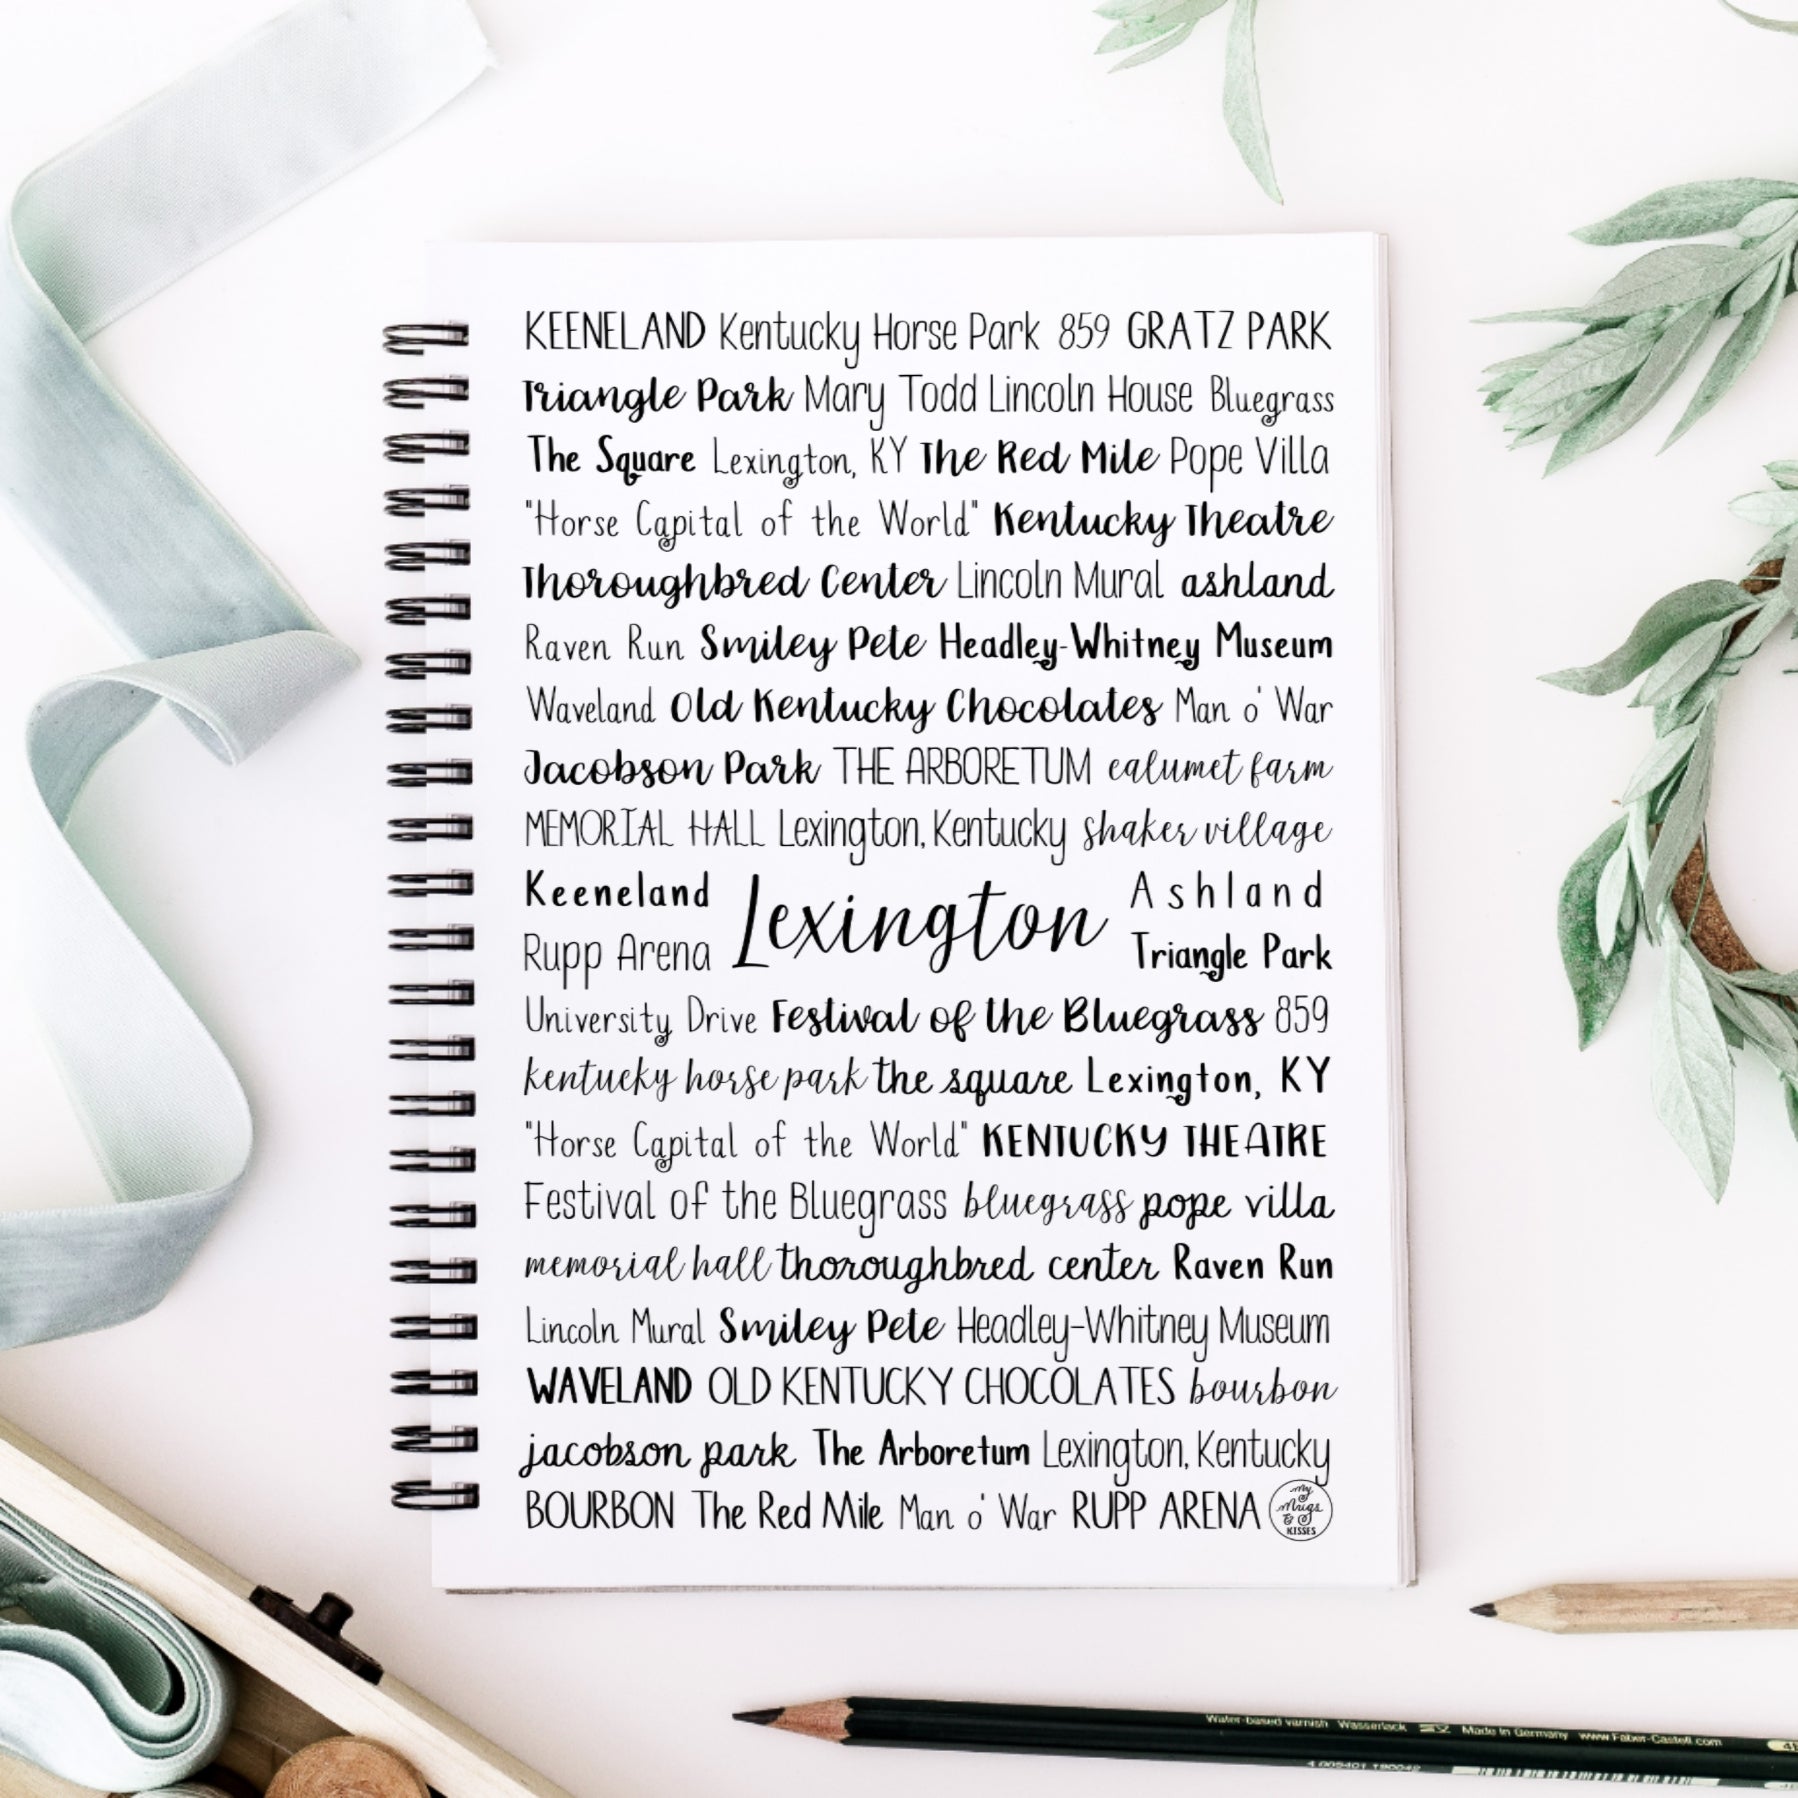 KEENELAND Kentucky Horse Park 859 GRATZ PARK
Triangle Park Mary Todd Lincoln House Bluegrass
The Square Lexington, KY The Red Mile Pope Villa
"Horse Capital of the World" Kentucky Theatre
Thoroughbred Center Lincoln Mural ashland
Raven Run Smiley Pete Headley-Whitney Museum
Waveland Old Kentucky Chocolates Man o' War
Jacobson Park THE ARBORETUM calumet farm
MEMORIAL HALL Lexington, Kentucky shaker village
Keeneland
Rupp Arena
Lexington
Ashland
Triangle Park
University Drive Festival of the Bluegrass 859
kentucky horse park the square Lexington, KY
"Horse Capital of the World" KENTUCKY THEATRE
Festival of the Bluegrass bluegrass pope villa
memorial hall thoroughbred center Raven Run
Lincoln Mural Smiley Pete Headley-Whitney Museum
WAVELAND OLD KENTUCKY CHOCOLATES bourbon
jacobson park The Arboretum Lexington, Kentucky
BOURBON The Red Mile Man o' War RUPP ARENA
My
Mugs
&
KISSES
Water-based varnish Wasserlack Made in Germany www.Faber-Castell.com